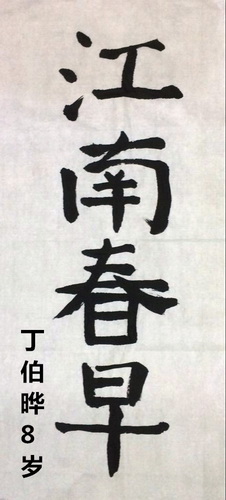 江南春早
丁伯晔8岁